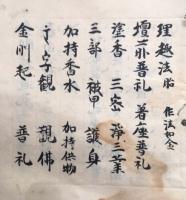 理趣法 作法如金
壇前普礼 着座普礼
塗香 三密 淨三業
三部 被甲 護身
加持香水 加持供物
字観 観佛
金剛起 普礼